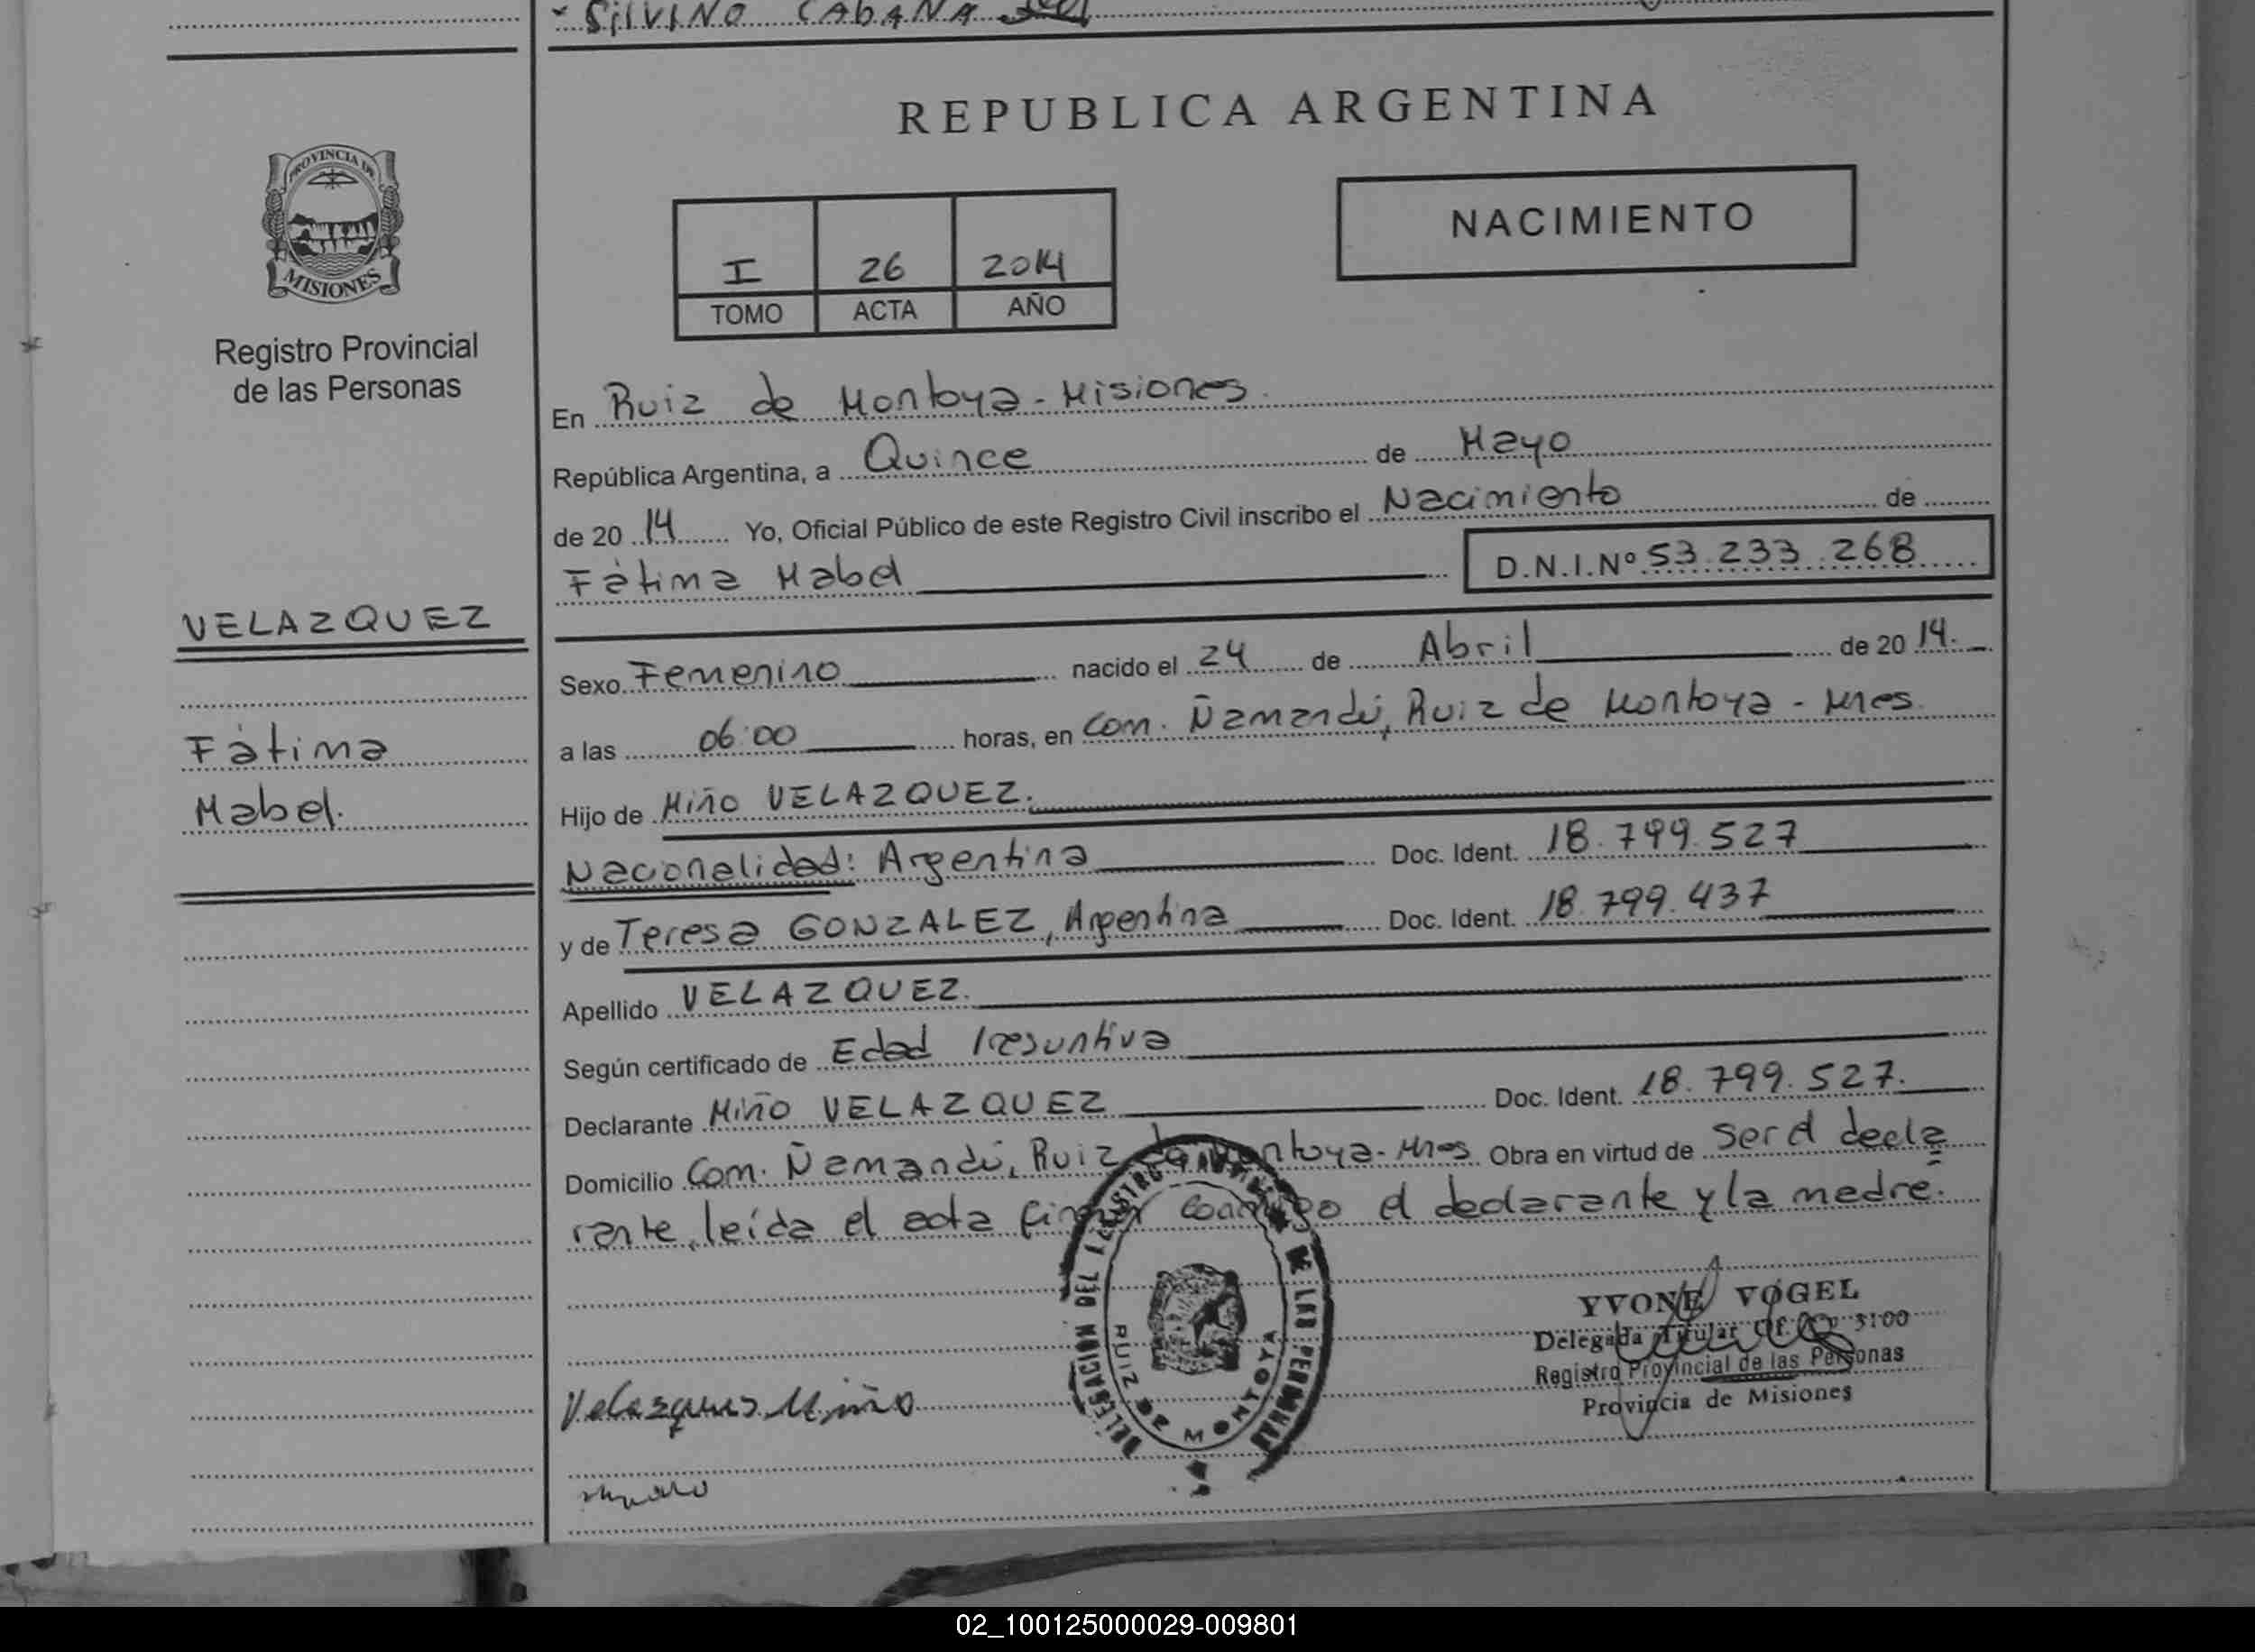 SILVINO CABAÑA
REPUBLICA ARGENTINA
PROVINCIA DE
MISIONES
Registro Provincial
de las Personas
NACIMIENTO
I 26 2014
TOMO ACTA AÑO
En Ruiz de Montoya - Misiones.
República Argentina, a Quince de Mayo
de 20 14 Yo, Oficial Público de este Registro Civil inscribo el Nacimiento de
Fàtima Mabel D.N.I.Nº 53.233.268
VELAZQUEZ
Fàtima
Mabel.
Sexo Femenino nacido el 24 de Abril de 20 14.
a las 06:00 horas, en Com. Ñamandú, Ruiz de Montoya - Mnes.
Hijo de Miño VELAZQUEZ.
Nacionalidad: Argentina Doc. Ident. 18.799.527
y de Teresa GONZALEZ, Argentina Doc. Ident. 18.799.437
Apellido VELAZQUEZ.
Según certificado de Edad Presuntiva
Declarante Miño VELAZQUEZ Doc. Ident. 18.799.527.
Domicilio Com. Ñamandú, Ruiz de Montoya - Mnes Obra en virtud de Ser el decla
rante, leída el acta firman conmigo el declarante y la madre.
DELEGACION DEL REGISTRO DE LAS PERSONAS
RUIZ DE MONTOYA
YVONE VOGEL
Delegada Titular Of. 3100
Registro Provincial de las Personas
Provincia de Misiones
Velazques Miño
02_100125000029-009801